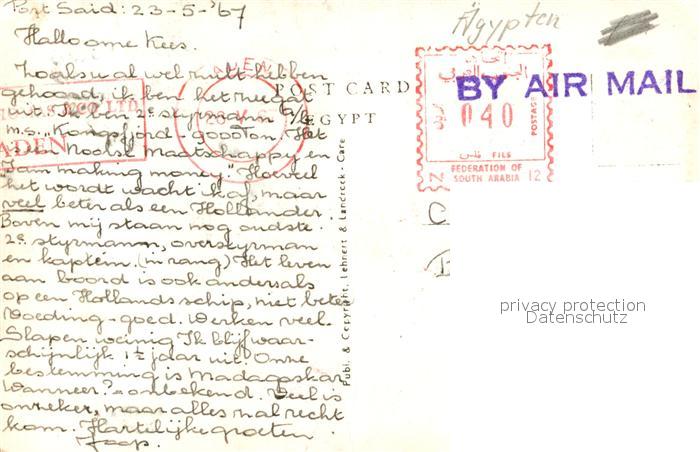 Port Said: 23-5-'67
Hallo ome Kees.
Zoals u al wel zult hebben
gehoord, ik ben het zeegat
uit. Ik ben 2e styrmann a/b
m.s. "Kongsfjord" 9000 Ton. Het
is een Noorse Maatschappy en
"I am making money." Hoeveel
het wordt wacht ik af, maar
veel beter als een Hollander.
Boven mij staan nog oudste
2e styrmann, overstyrman
en kaptein. (in rang) Het leven
aan boord is ook anders als
op een Hollands schip, niet beter
Voeding - goed. Werken veel.
Slapen weinig Ik blijf waar-
schijnlijk 1½ jaar uit. Onze
bestemming is Madagaskar
Wanneer? - onbekend. Veel is
onzeker, maar alles zal recht
kom. Hartelijke groeten
Joop.
CO LTD
ADEN
ADEN
POST CARD
EGYPT
Publ. & Copyright, Lehnert & Landrock - Cairo
Ägypten
040
POSTAGE
FILS
FEDERATION OF
SOUTH ARABIA
N
12
BY AIR MAIL
C
privacy protection
Datenschutz